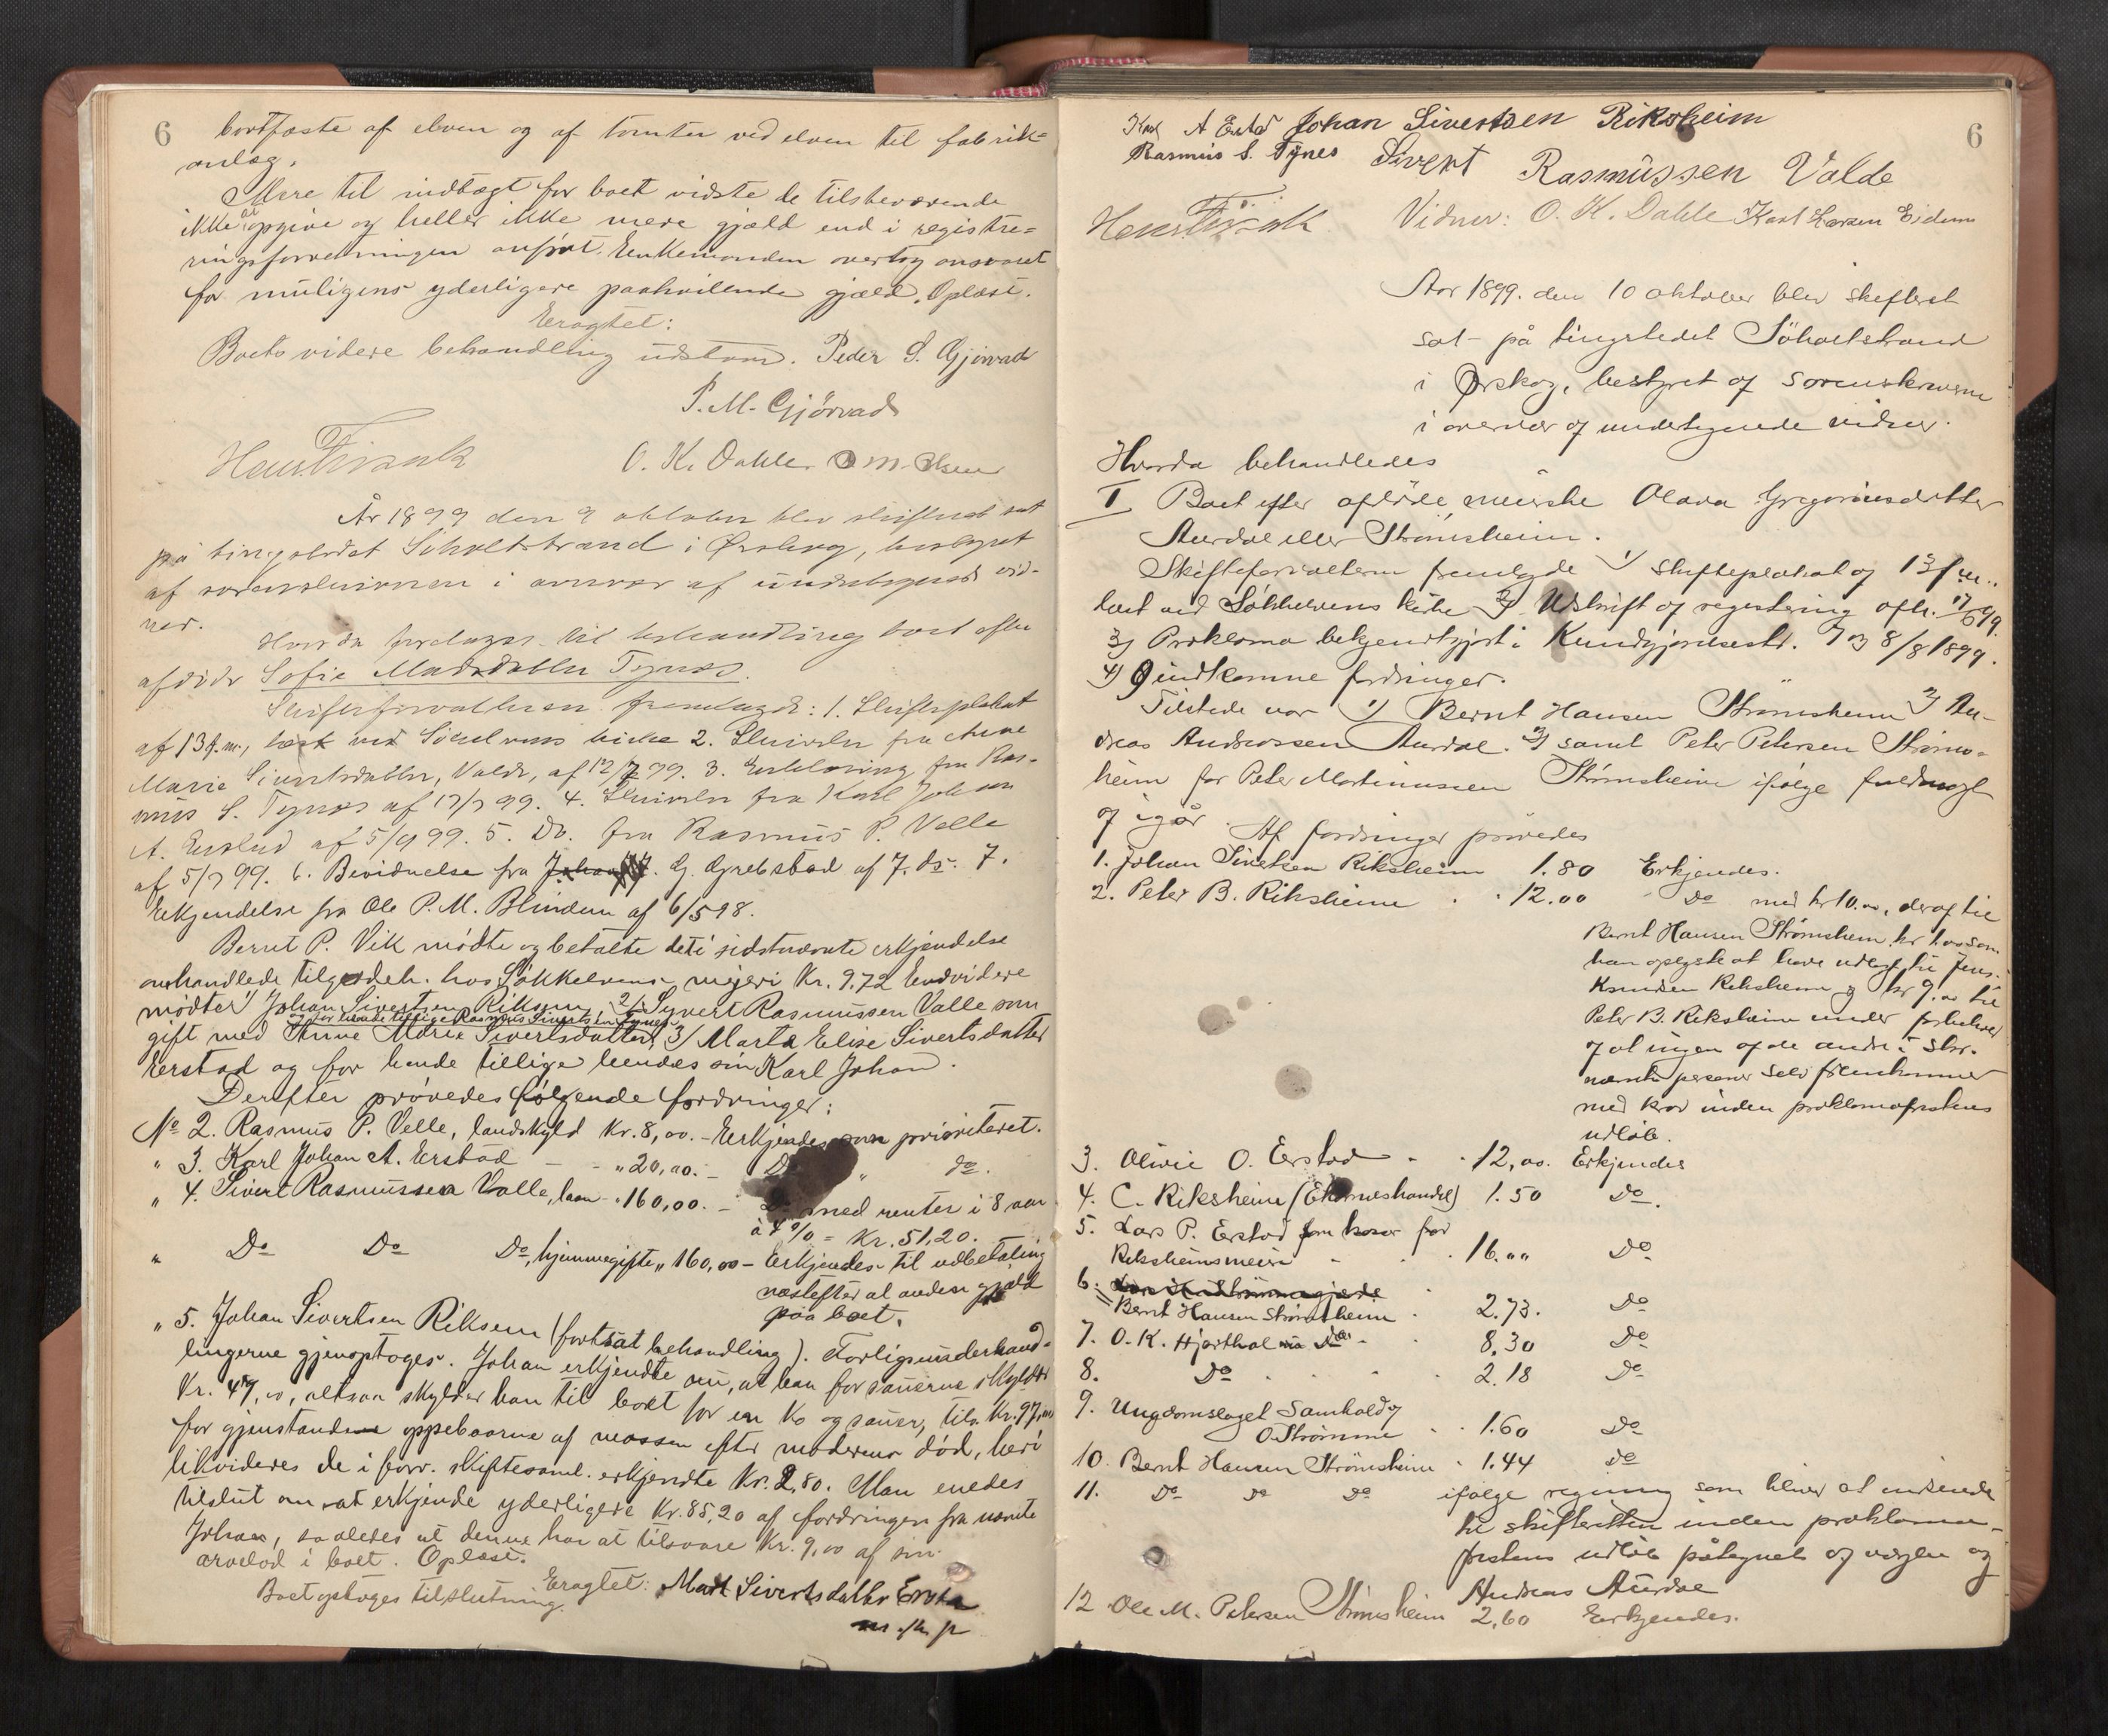 6
bortfæste af elven og af tomter ved elven til fabrik-
anlæg.
Mere til indtægt for boet vidste de tilstedeværende
ikke at opgive og heller ikke mere gjæld end i registre-
ringsforretningen anført. Enkemanden overtog ansvaret
for muligens yderligere paahvilende gjæld. Oplæst.
Eragtet:
Boets videre behandling udstaar. Peder S. Gjørvad
P. M. Gjørvad
Hans Finak
O. K. Dahle O M. Olsen
År 1899 den 9 oktober blev skifteret sat
på tingstedet Søholtstrand i Ørskog, bestyret
af sorenskriveren i overvær af undertegnede vid-
ner.
Hvorda foretages til behandling boet efter
afdøde Sofie Madsdatter Tynes.
Skifteforvalteren fremlagde: 1. Skifteplakat
af 13 f. m., læst ved Søkelvens kirke 2. Skrivelse fra Anne
Marie Sivertsdatter, Valde, af 12/7 99. 3. Erklæring fra Ras-
mus S. Tynes af 17/7 99. 4. Skrivelse fra Karl Johan
A. Erstad af 5/9 99. 5. Do. fra Rasmus P. Velle
af 5/7 99. 6. Bevidnelse fra G. Grebstad af 7. ds. 7.
Erkjendelse fra Ole P. M. Blindem af 6/5 98.
Bernt P. Vik mødte og betalte det i sidstnævnte erkjendelse
omhandlede tilgodeh. hos Søkkelvens mejeri Kr. 9.72 Endvidere
mødte 1/ Johan Sivertsen Riksem, 2/ Syvert Rasmussen Valle som
og for hende tillige Rasmus Sivertsen Tynes
gift med Anne Marie Sivertsdatter, 3/ Marta Elise Sivertsdatter
Erstad og for hende tillige hendes søn Karl Johan.
Derefter prøvedes følgende fordringer:
No 2. Rasmus P. Velle, landskyld Kr. 8,00. - Erkjendes som prioriteret.
" 3. Karl Johan A. Erstad - - " 20,00. - Do " do.
" 4. Sivert Rasmussen Valle, laan - " 160,00. - Do med renter i 8 aar
à 4 % = Kr. 51,20.
" Do Do Do, hjemmegifte " 160,00 - Erkjendes til udbetaling
næstefter al anden gjæld
paa boet.
" 5. Johan Sivertsen Riksem (fortsat behandling). Forligsunderhand-
lingerne gjenoptoges. Johan erkjendte nu, at han for sauerne skylder
Kr. 47,00, altsaa skylder han til boet for en Ko og sauer, tils. Kr. 97,00
for gjenstandene oppebaarne af massen efter moderens død, heri
likvideres de i forr. skiftesaml. erkjendte Kr. 2,80. Man enedes
tilslut om at erkjende yderligere Kr. 85,20 af fordringen fra nævnte
Johan, saaledes at denne har at tilsvare Kr. 9,00 af sin
arvelod i boet. Oplæst.
Eragtet: Mart Sivertsdatter Ersta
Boet optages til slutning.
m. f. p
6
Karl A Erstad Johan Sivertsen Riksheim
Rasmus S. Tynes Sivert Rasmussen Valde
Hans Finak Vidner: O. K. Dahle Karl Larsen Eidem
Aar 1899. den 10 oktober blev skifteret
sat på tingstedet Söholtstrand
i Ørskog, bestyret af sorenskriveren
i overvær af undertegnede vidner.
Hvorda behandledes
I Boet efter afdöde enerske Olava Gregoriusdatter
Aurdal eller Strømsheim.
Skifteforvalteren fremlagde 1) Skifteplakat af 13 f. m.
læst ved Søkkelvens kirke 2) Udskrift af registrering afh. 17/6 99.
3) Proklama bekjendtgjort i Kundgjørelsestid. 7 og 8/8 1899.
4) 9 indkomne fordringer.
Tilstede var 1) Bernt Hansen Strømsheim 2) An-
dreas Andreassen Aurdal. 3) samt Peter Petersen Strøms-
heim for Peter Martinussen Strømsheim ifølge fuldmagt
af igår.
Af fordringer prøvedes
1. Johan Sivertsen Riksheim 1.80 Erkjendes.
2. Peter B. Riksheim . . 12.00 Do med kr 10.00, deraf til
Bernt Hansen Strømsheim kr 1.00 som
han oplyste at have udlagt til Jens
Knudsen Riksheim og kr 9.00 til
Peter B. Riksheim under forbehold
af at ingen af de andre i skr.
nævnte personer selv fremkommer
med krav inden proklamafristens
udløb.
3. Olivie O. Erstad - . 12,00. Erkjendes
4. C. Riksheim (Ekornæshandel) 1.50 Do.
5. Lars P. Erstad som kasser for
Riksheimsmeieri - . . 16.00 Do
6. Bernt Hansen Strømsheim . 2.73. Do
7. O. K. Hjorthol . 8.30 Do
8. Do . . . 2.18 Do
9. Ungdomslaget Samhold og
O. Strømme . . 1.60 Do
10. Bernt Hansen Strømsheim . 1.44 Do
11. Do Do Do ifølge regning som bliver at indsende
til skifteretten inden proklama-
fristens udløb påtegnet af værgen og
Andreas Aurdal
12 Ole M. Petersen Strømsheim 2,60 Erkjendes.